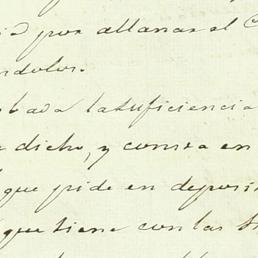 por allanar el
ndolos.
bada la suficiencia
dicho, y consta en
que pide en deposi
que tiene con las